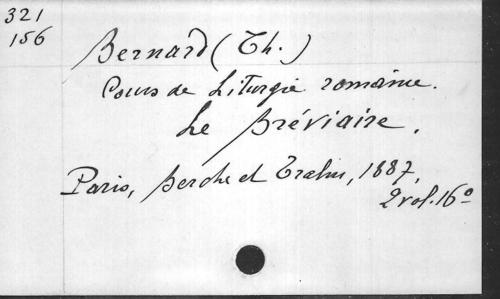 321
156
Bernard (Th.)
Cours de Liturgie romaine.
Le Bréviaire.
Paris, Berche et Tralin, 1887,
2 vol. 16º